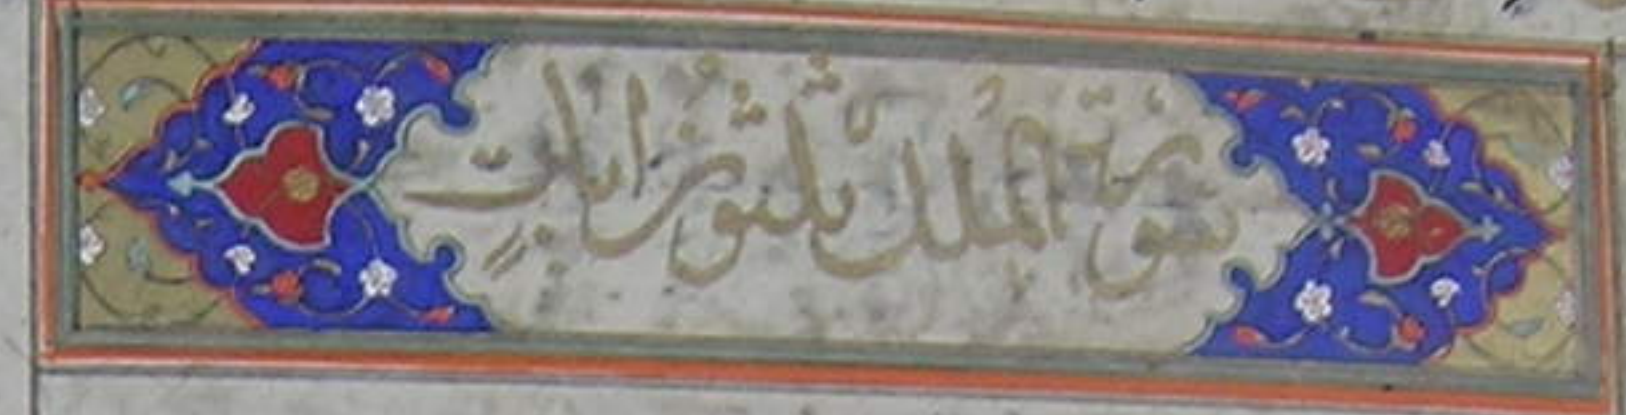 سُورَةُ الْمُلْكِ ثَلٰثُونَ اٰيَاتٍ